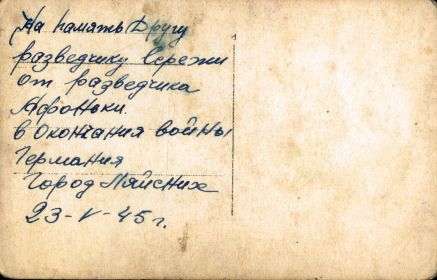 На память Другу
разведчику Сережи
от разведчика
Афоньки.
в Окончания войны
Германия
Город Ляйсних
23-V-45 г.